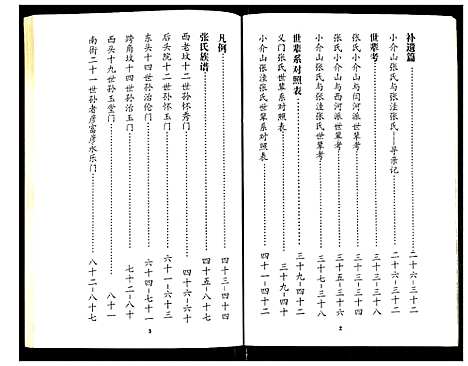 补遗篇……二十六–三十二
小介山张氏与张洼张氏——寻亲记……二十六–三十二
世辈考
张氏小介山与闫河派世辈考……三十三–三十四
张氏小介山与西河派世辈考……三十五–三十六
小介山张氏与张洼张氏世辈考……三十七–三十八
世辈系对照表……三十九–四十二
义门张氏世辈系对照表……三十九–四十
小介山张洼张氏世辈系对照表……四十一–四十二
2
凡例……四十三–四十四
张氏族谱……四十五–八十七
西老坟十二世孙怀秀门……四十六–六十
后头院十二世孙怀玉门……六十一–六十三
东头十四世孙治伦门……六十四–七十一
跨角坟十四世孙治玉门……七十二–八十
西头十九世孙玉堂门……八十一
南街二十一世孙老彦富彦水乐门……八十二–八十七
3